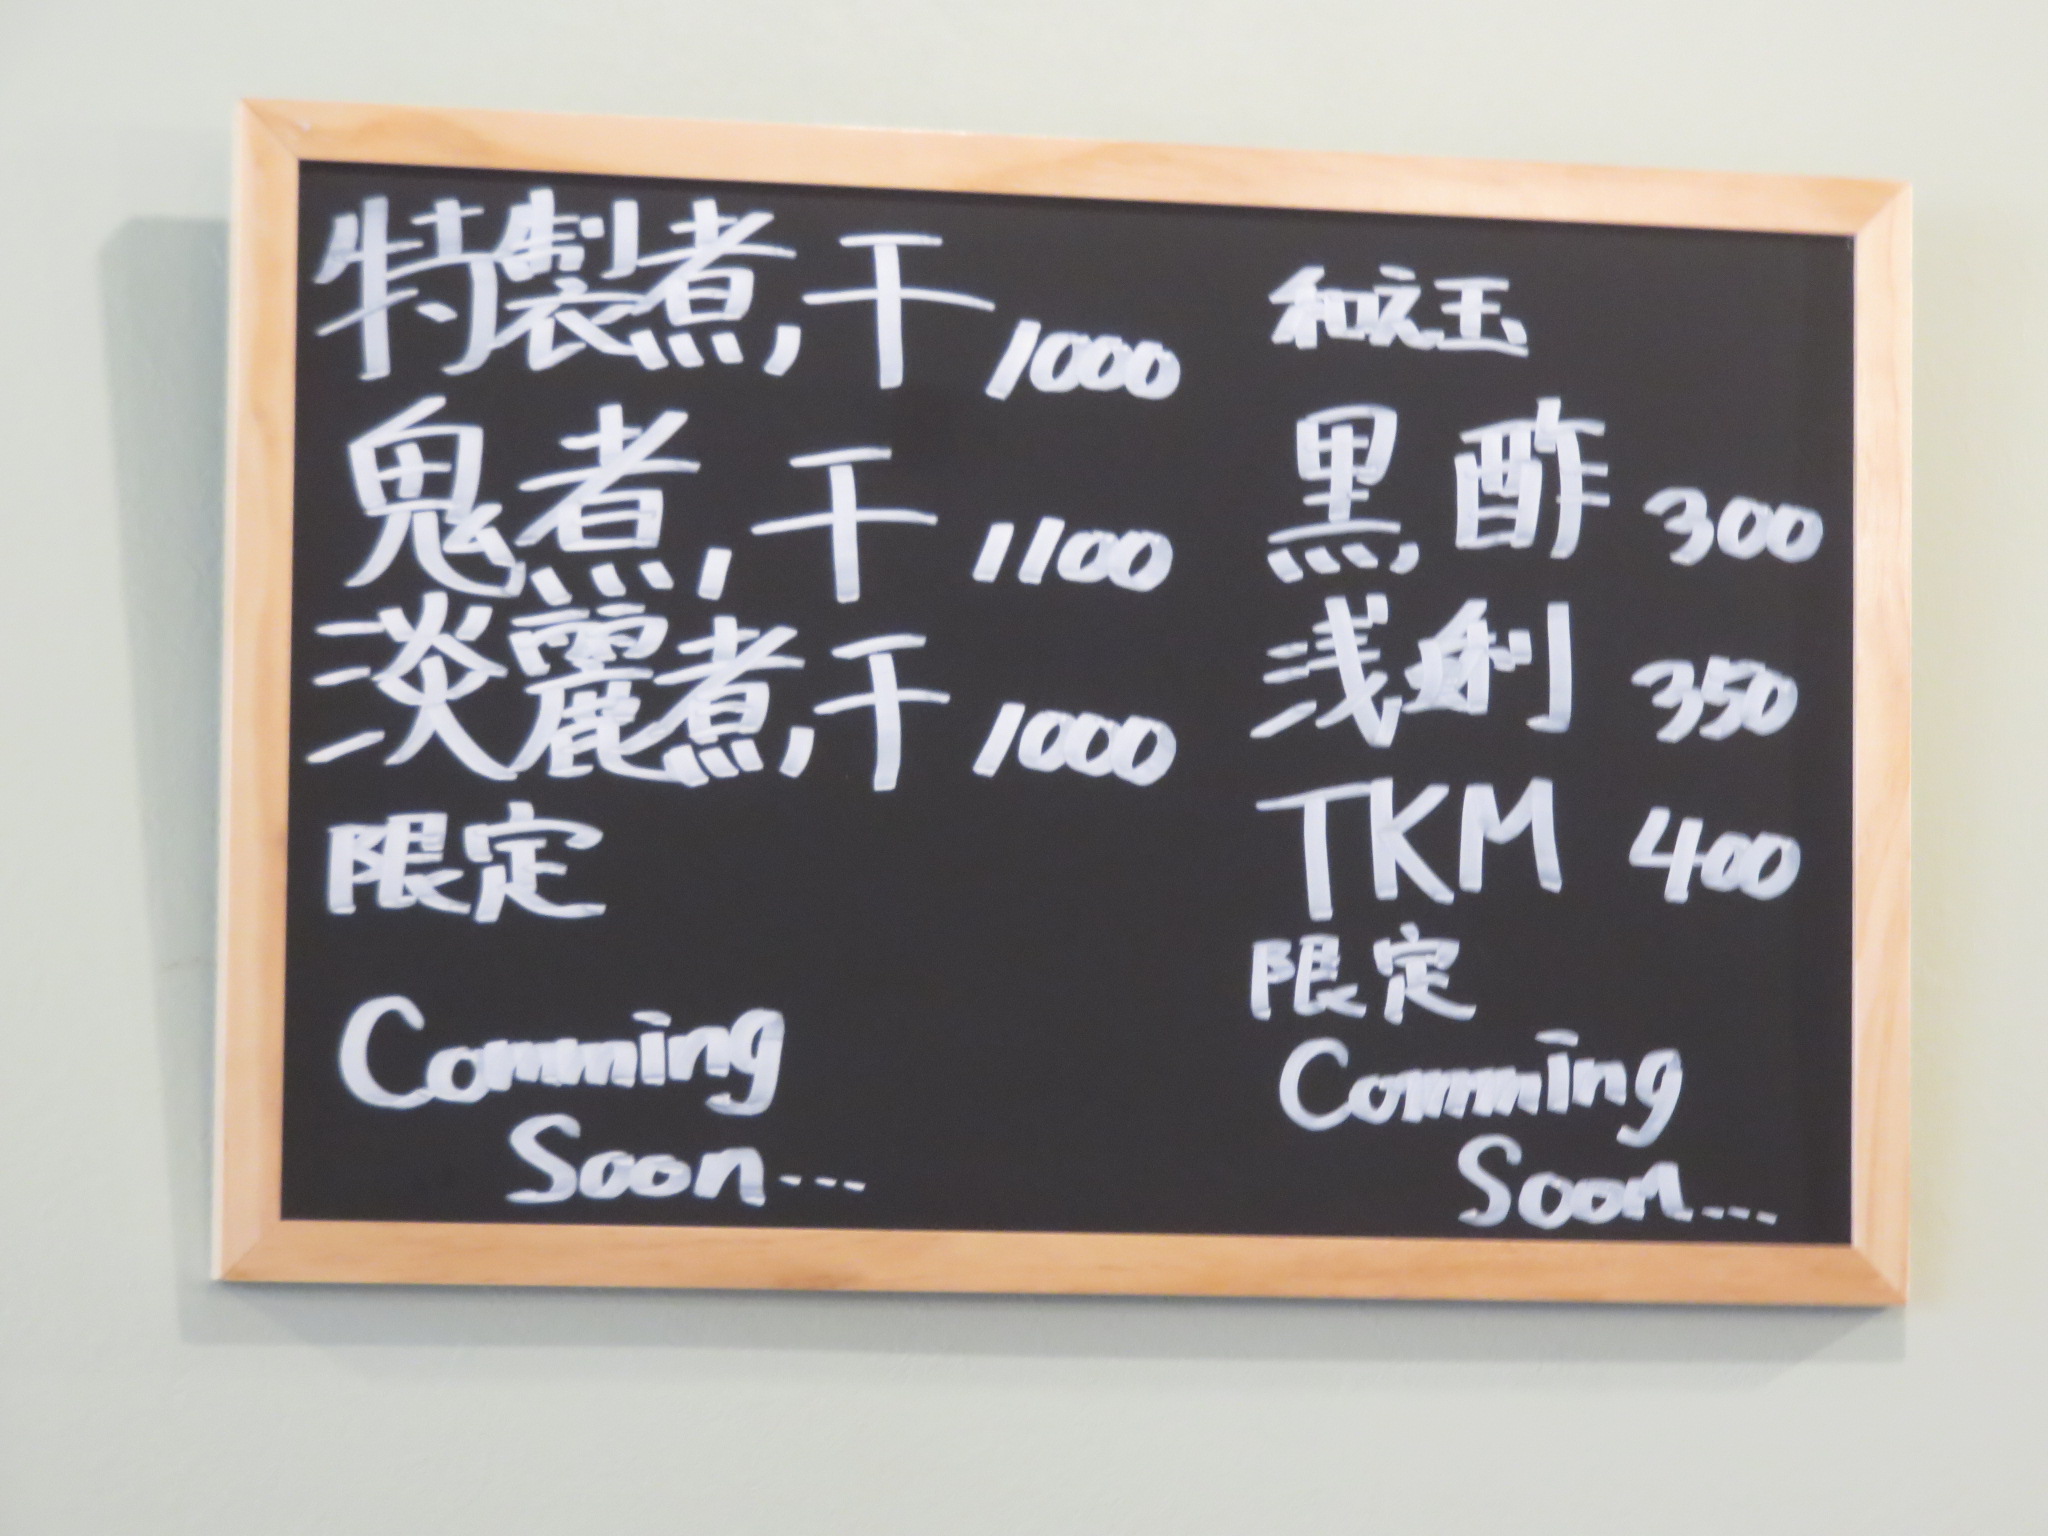 特製煮干 1000
鬼煮干 1100
淡麗煮干 1000
限定
Comming
Soon---
和え玉
黒酢 300
浅利 350
TKM 400
限定
Comming
Soon---